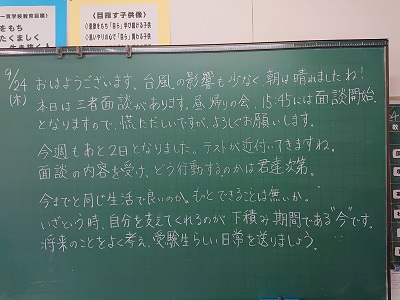 一貫学校教育目標》
をもち
たくましく
生き抜く人
《目指す子供像》
9/24
(木)
おはようございます。台風の影響も少なく、朝は晴れましたね!
本日は三者面談があります。昼帰りの会、15:45には面談開始。
となりますので、慌ただしいですが、よろしくお願いします。
今週もあと2日となりました。テストが近付いてきますね。
面談の内容を受け、どう行動するのかは君達次第。
今までと同じ生活で良いのか。もっとできることは無いか。
いざという時、自分を支えてくれるのが下積み期間である"今"です。
将来のことをよく考え、受験生らしい日常を送りましょう。